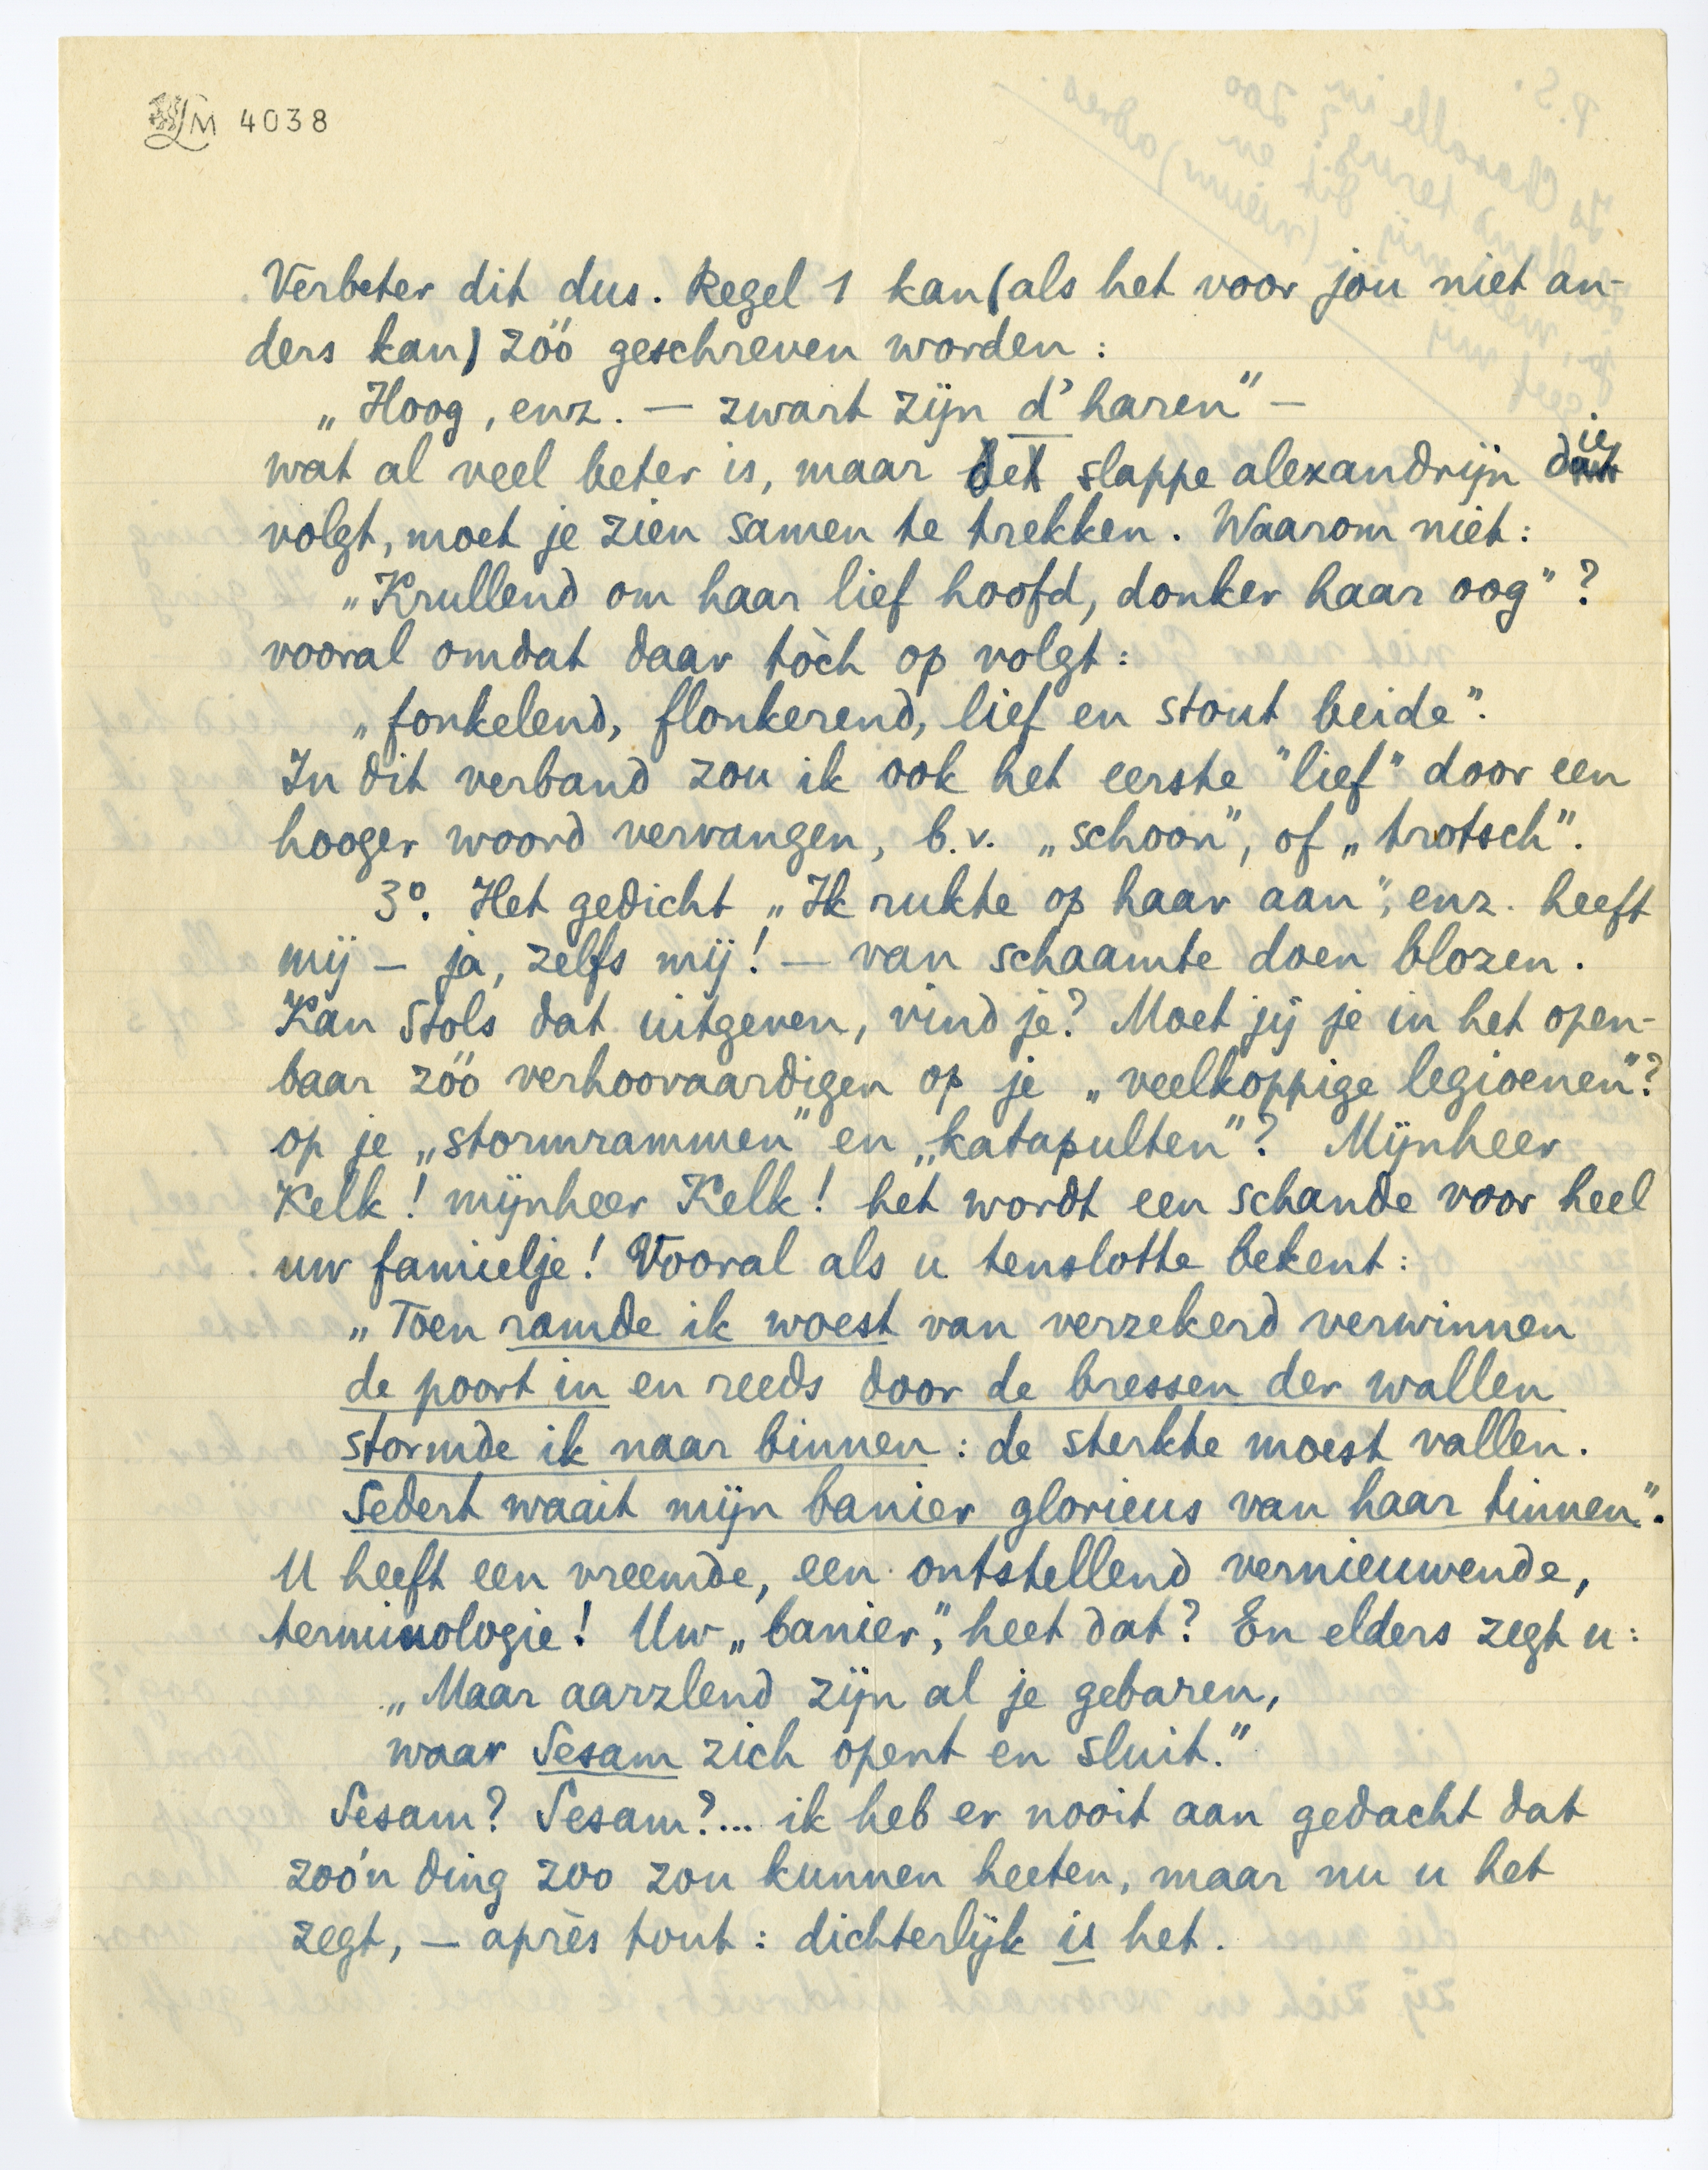 LM 4038
Verbeter dit dus. Regel 1 kan (als het voor jou niet an-
ders kan) zóó geschreven worden:
„Hoog, enz. — zwart zijn d' haren" —
wat al veel beter is, maar de slappe alexandrijn die
volgt, moet je zien samen te trekken. Waarom niet:
„Krullend om haar lief hoofd, donker haar oog"?
vooral omdat daar tòch op volgt:
„fonkelend, flonkerend, lief en stout beide".
In dit verband zou ik ook het eerste "lief" door een
hooger woord vervangen, b.v. „schoon", of „trotsch".
3º. Het gedicht „Ik rukte op haar aan", enz. heeft
mij — ja, zelfs mij! — van schaamte doen blozen.
Kan Stols dat uitgeven, vind je? Moet jij je in het open-
baar zóó verhoovaardigen op je „veelkoppige legioenen"?
op je „stormrammen" en „katapulten"? Mijnheer
Kelk! mijnheer Kelk! het wordt een schande voor heel
uw famielje! Vooral als u tenslotte bekent:
„Toen ramde ik woest van verzekerd verwinnen
de poort in en reeds door de bressen der wallen
stormde ik naar binnen: de sterkte moest vallen.
Sedert waait mijn banier glorieus van haar tinnen".
U heeft een vreemde, een ontstellend vernieuwende,
terminologie! Uw „banier", heet dat? En elders zegt u:
„Maar aarzlend zijn al je gebaren,
waar Sesam zich opent en sluit."
Sesam? Sesam?... ik heb er nooit aan gedacht dat
zoo'n ding zoo zou kunnen heeten, maar nu u het
zegt, — après tout: dichterlijk is het.